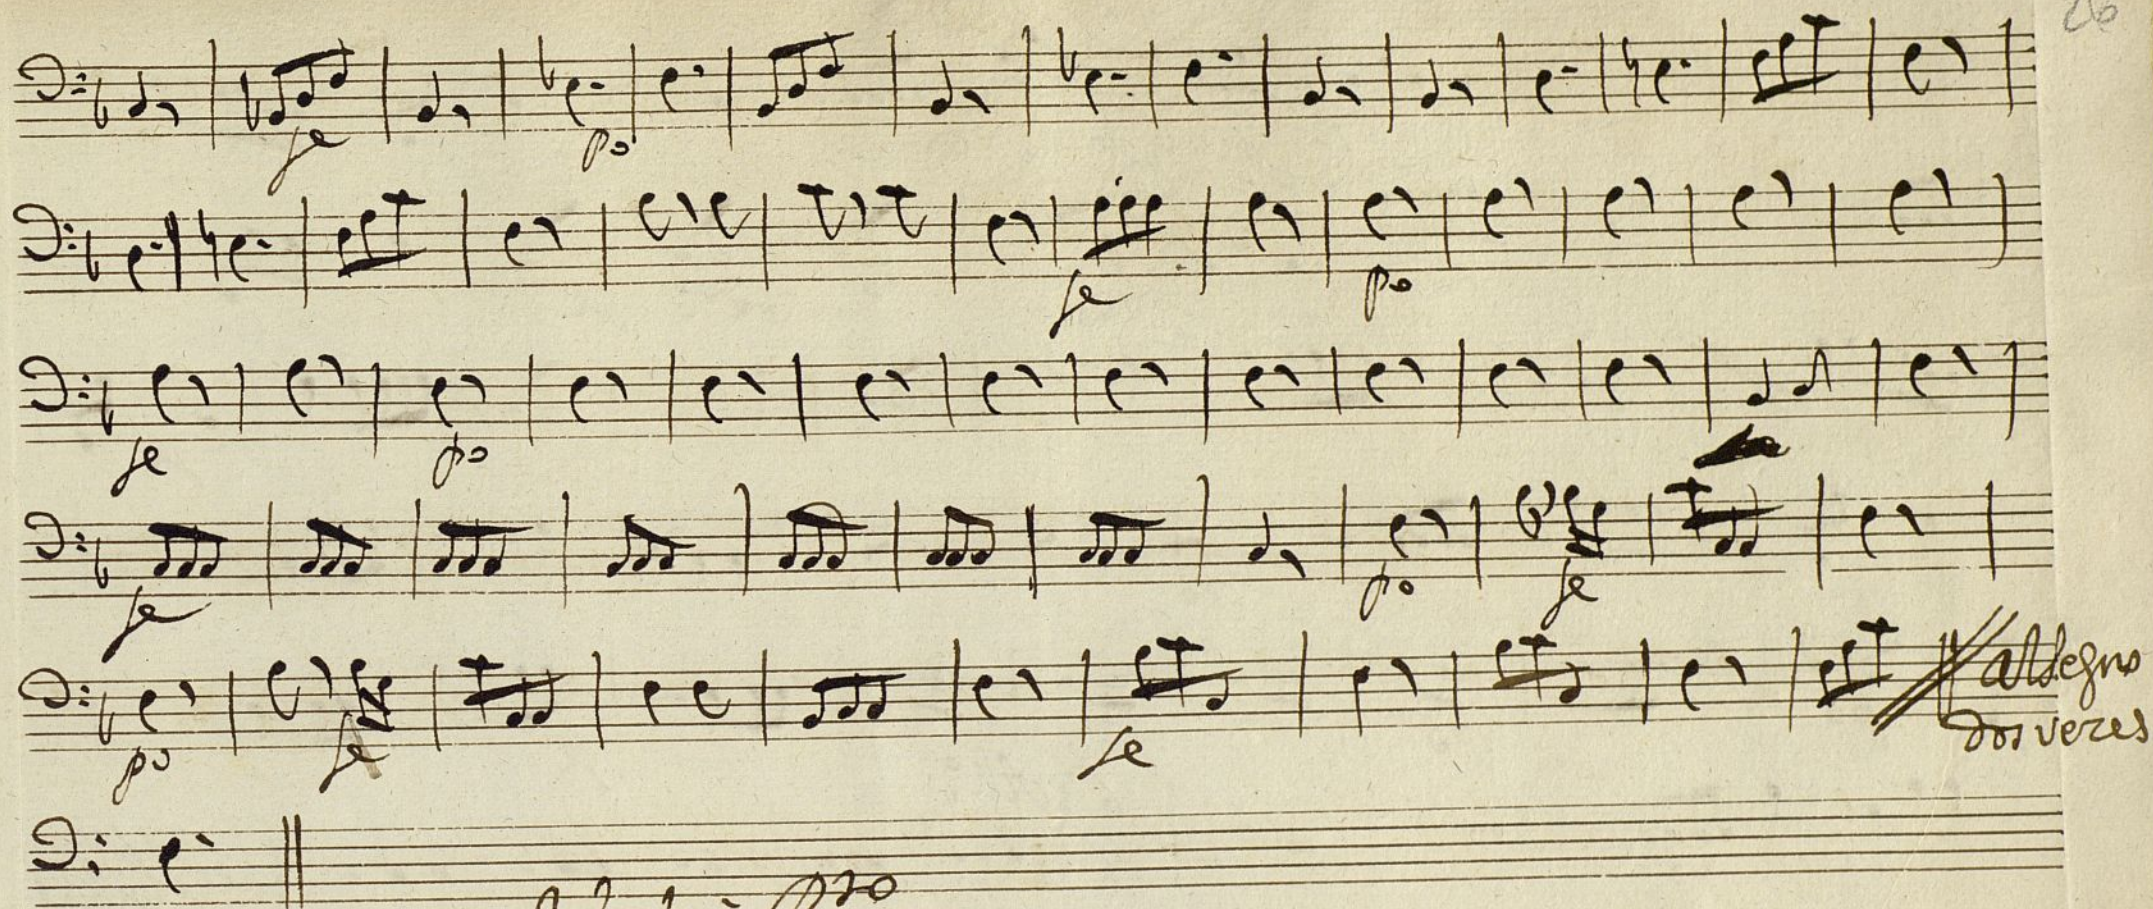 26
fe po
fe po
fe po
fe po fe
po fe fe al Segno
dos vezes